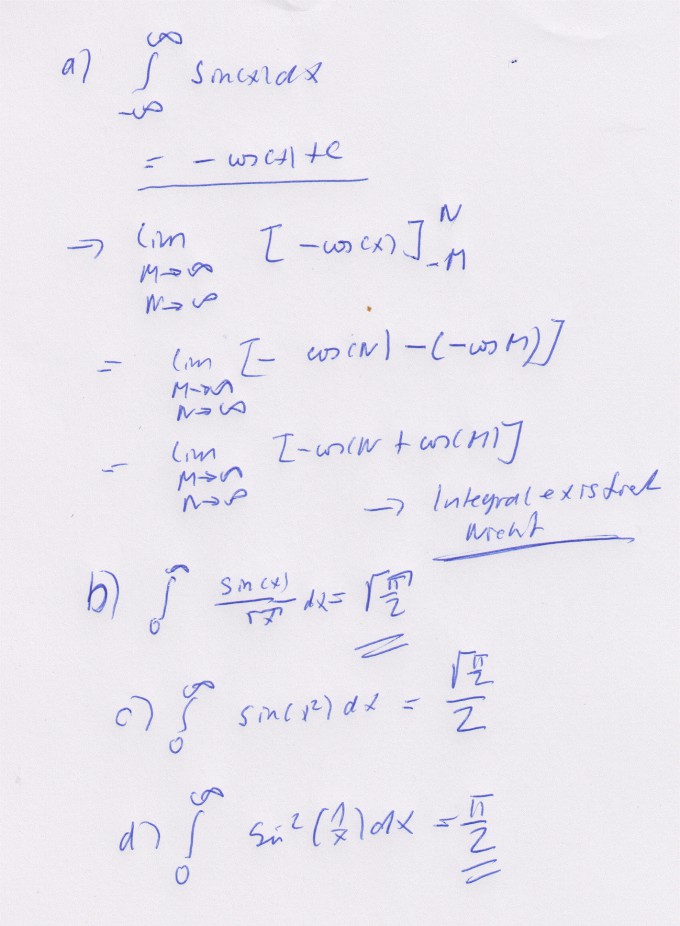 a) ∫_{-∞}^{∞} sin(x) dx
= - cos(x) + c
⇒ lim_{M→∞, N→∞} [-cos(x)]_{-M}^{N}
= lim_{M→∞, N→∞} [- cos(N) - (-cos M)]
= lim_{M→∞, N→∞} [-cos(N + cos(M)]
→ Integral existiert
nicht
b) ∫_0^∞ sin(x)/√x dx = √(π/2)
c) ∫_0^∞ sin(x²) dx = √(π/2)/2
d) ∫_0^∞ sin²(1/x) dx = π/2